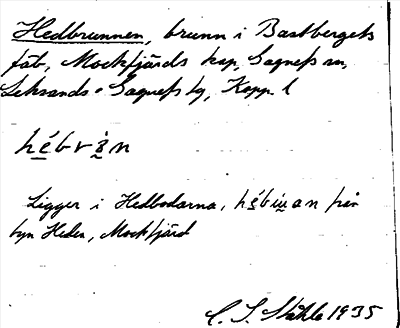 Hedbrunnen, brunn i Bastbergets
fäb, Mockfjärds kap, Gagnefs sn,
Leksands o Gagnefs tg, Kopp. l
Ligger i Hedbodarna, från
byn Heden, Mockfjärd
C. I. Ståhle 1935